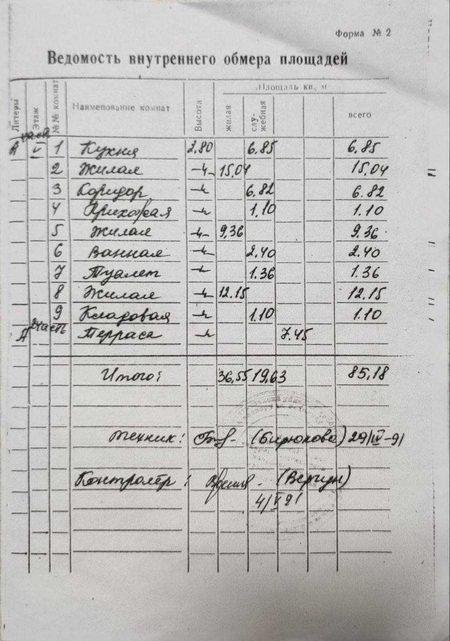 Форма № 2
Ведомость внутреннего обмера площадей
Литеры Этаж №№ комнат Наименование комнат Высота Площадь кв. м
жилая служебная всего
А I 1 Кухня 2,80 6.85 6.85
2 Жилая -"- 15,04 15,04
3 Коридор -"- 6,82 6.82
4 Прихожая -"- 1.10 1.10
5 Жилая -"- 9,36 9.36
6 Ванная -"- 2.40 2.40
7 Туалет -"- 1.36 1.36
8 Жилая -"- 12.15 12.15
9 Кладовая -"- 1.10 1.10
А часть Терраса -"- 7.45
Итого: 36,55 19,63 85,18
Техник: (Бирюкова) 29/IV-91
Контролёр: (Вергун)
4/V 91